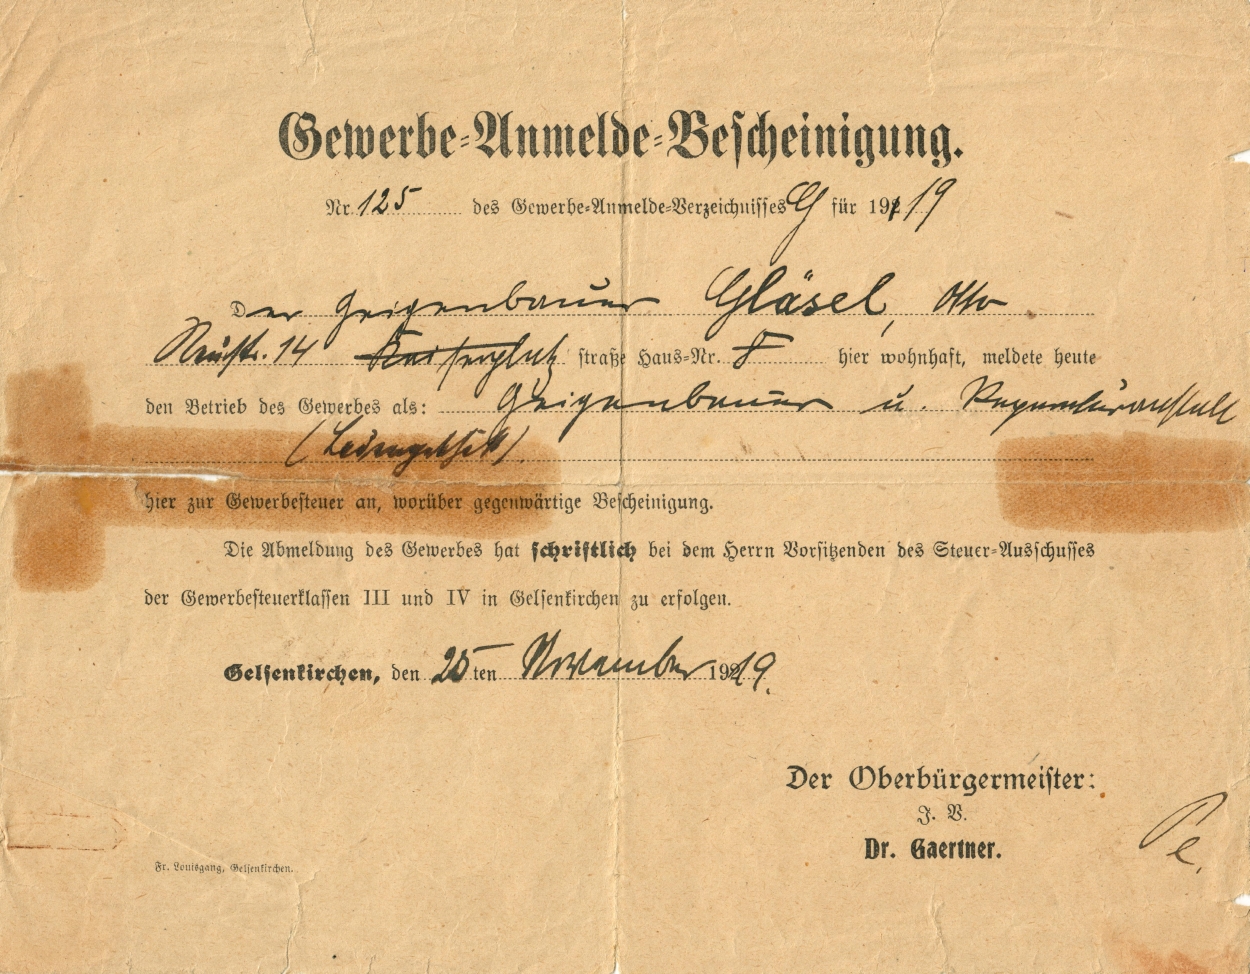 Gewerbe-Anmelde-Bescheinigung.
Nr. 125 des Gewerbe-Anmelde-Verzeichnisses G für 1919
Der Geigenbauer Gläsel, Otto
Neustr. 14 straße Haus-Nr. 8 hier wohnhaft, meldete heute
den Betrieb des Gewerbes als: Geigenbauer u. Reparaturanstalt
hier zur Gewerbesteuer an, worüber gegenwärtige Bescheinigung.
Die Abmeldung des Gewerbes hat schriftlich bei dem Herrn Vorsitzenden des Steuer-Ausschusses
der Gewerbesteuerklassen III und IV in Gelsenkirchen zu erfolgen.
Gelsenkirchen, den 25ten November 1919.
Der Oberbürgermeister:
J. V.
Dr. Gaertner.
Pe.
Fr. Louisgang, Gelsenkirchen.